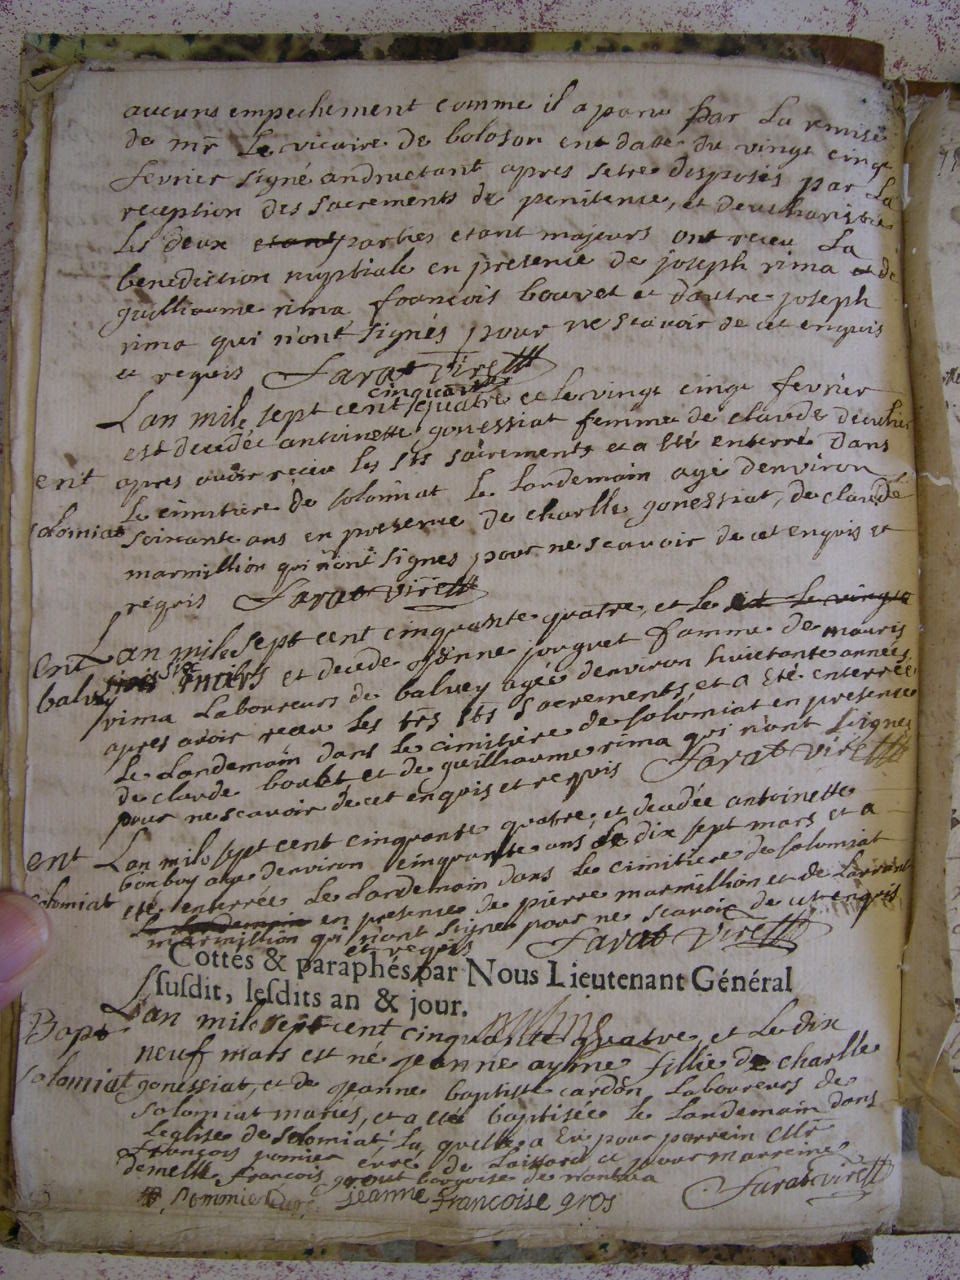 aucuns empechement comme il a paru par La remise
de mr Le vicaire de boloson ent datte du vingt cinqe
fevrier signé andructant apres setre disposés par La
reception des sacrements de penitence, et deucharistie
les deux etant parties etant majeurs ont receu La
benediction nuptiale en presence de joseph rima et de
guilliaume rima francois bouvet et dautre joseph
rima qui n'ont signés pour ne scavoir de cet enquis
et requis Farat vire
cinquante
Lan mile sept cent quatre et le vingt cinqe fevrier
est decedée antoinette gonessiat femme de claude
ent apres avoir receu les sts sacrements et a été enterré dans
Le cimitiere de solomiat le landemain agé denviron
solomiat soixante ans en presence de charlle gonessiat, de claude
marmillion qui n'ont signes pour ne scavoir de cet enquis et
requis Farat vire
Lan mile sept cent cinquante quatre, et le et le vingte
ent six mars et decede jouguet famme de mauris
balvey rima Laboureurs de balvey agée denviron huictante années
apres avoir receu les trs sts sacrements et a été enterrée
le landemain dans le cimitiere de solomiat en presence
de claude boulet, et de guilhaume rima qui n'ont signes
pour ne scavoir de cet enquis et requis Farat vire
ent Lan mile sept cent cinquante quatre, et decedée antoinette
bonboy agee denviron cinquante ans le dix sept mars et a
solomiat eté enterrée le landemain dans le cimitiere de solomiat
le landemain en presence de pierre marmillion et de
marmillion qui n'ont signes pour ne scavoir de cet enquis
et requis Farat vire
Cottés & paraphés par Nous Lieutenant Général
susdit, lesdits an & jour.
Bapt Lan mile sept cent cinquante quatre et le dix
neuf mars est né jeanne ayme fillie de charlle
solomiat gonessiat, et de jeanne baptiste cardon Laboureurs de
solomiat maries, et a eté baptisée le landemain dans
Leglise de solomiat, La quelle a Eu pour parrein Mr
francois pomier curé de et pour marreine
demelle francoise grout borgoise de nantua
Pommier curé jeanne francoise gros Farat vire